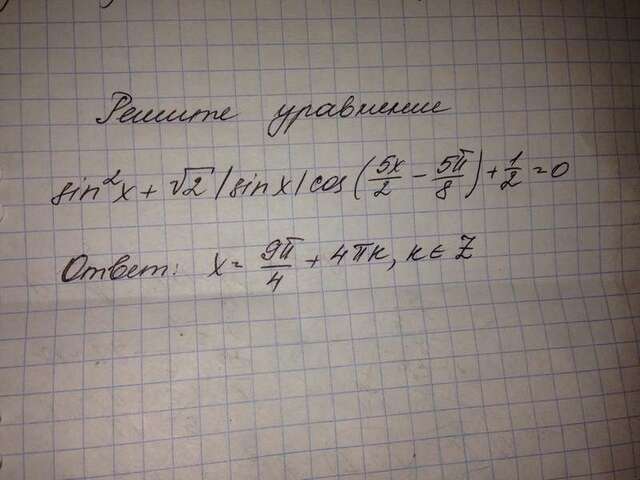 Решите уравнение
sin²x + √2 |sin x| cos (5x/2 − 5π/8) + 1/2 = 0
Ответ: x = 9π/4 + 4πк, к ∈ Z